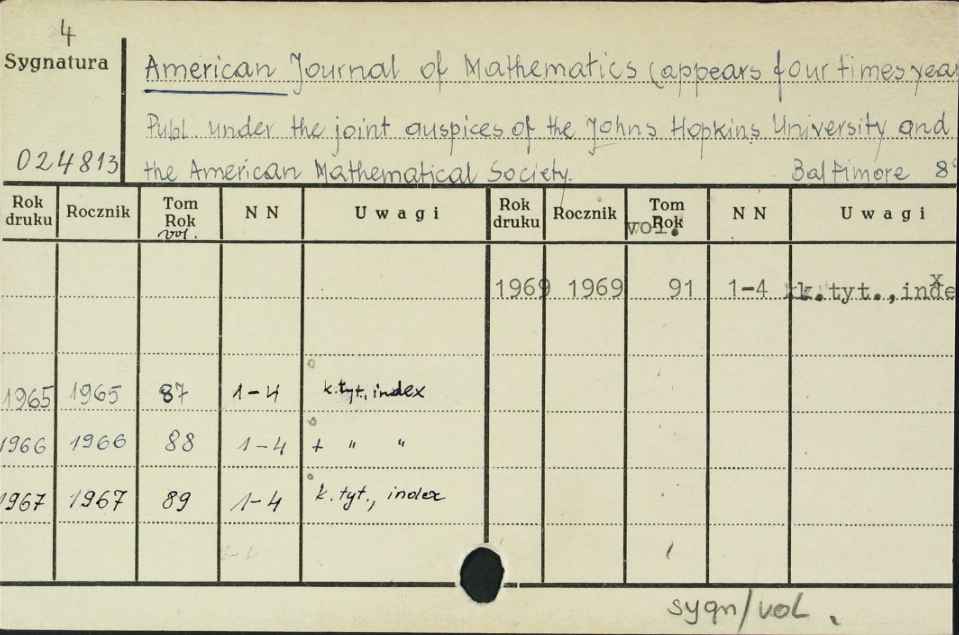 4
Sygnatura
024813
American Journal of Mathematics (appears four times year
Publ. under the joint auspices of the Johns Hopkins University and
the American Mathematical Society. Baltimore 8
Rok druku Rocznik Tom Rok vol. N N Uwagi Rok druku Rocznik Tom Rok vol. N N Uwagi
1969 1969 91 1-4 k.tyt.,index
1965 1965 87 1-4 k.tyt., index
1966 1966 88 1-4 + " "
1967 1967 89 1-4 k.tyt., index
sygn/vol.